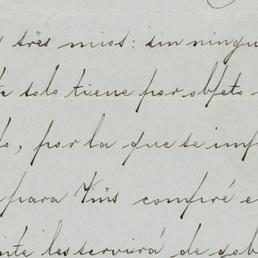 s sres mios: sin ningu
te solo tiene por objeto
o, por la que se imp
para Vms confiré e
inte les servirá de sob